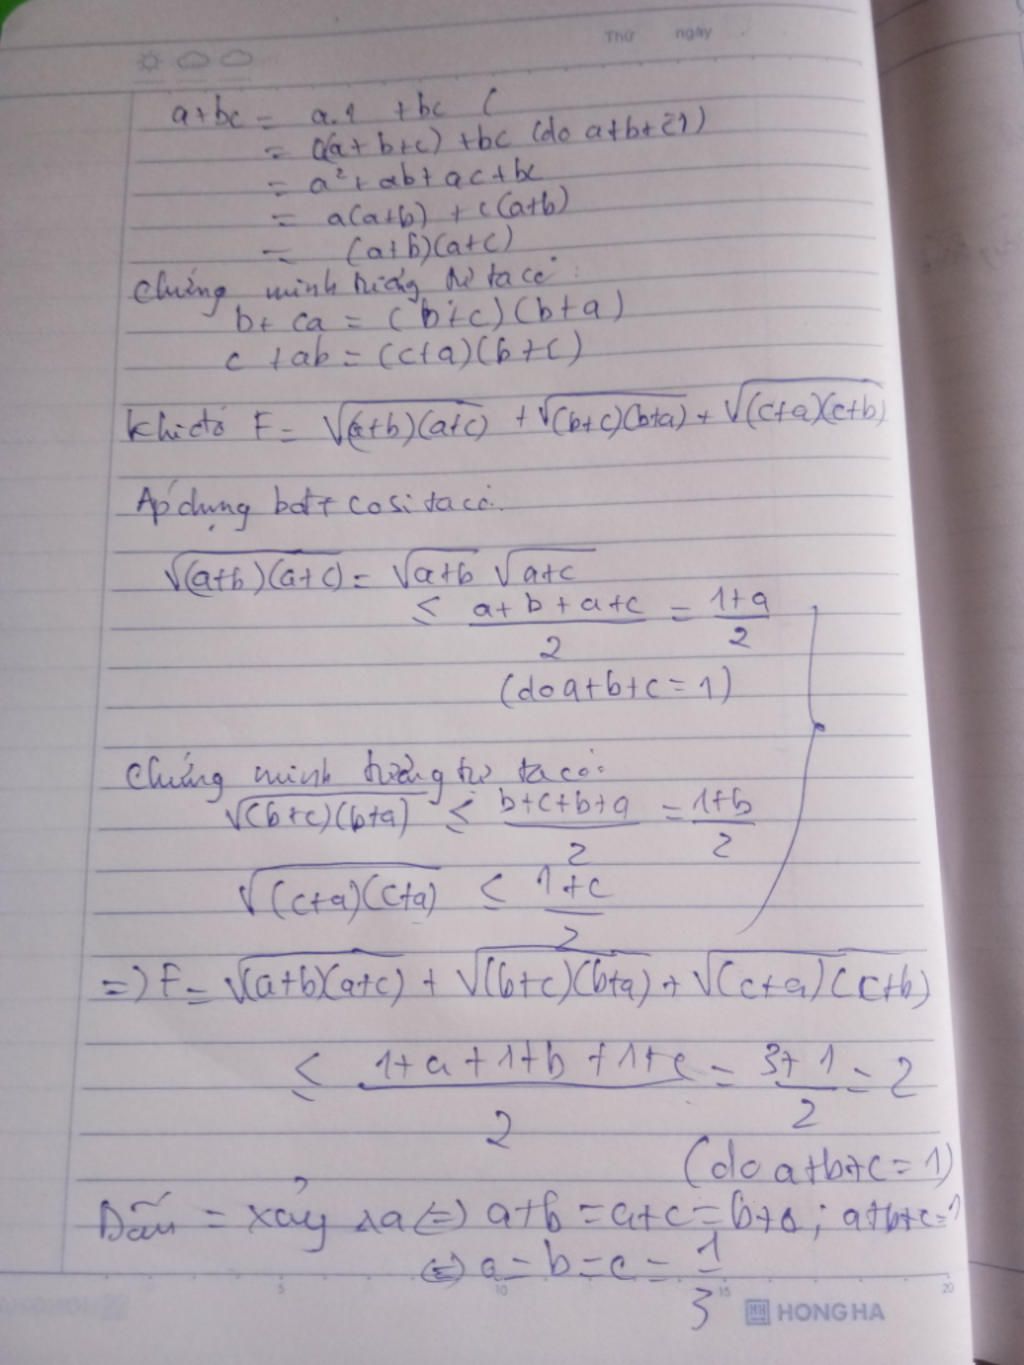 Thứ ngày
a+bc = a.1 +bc (
= a(a+b+c) +bc (do a+b+c=1)
= a²+ab+ac+bc
= a(a+b) + c(a+b)
= (a+b)(a+c)
Chứng minh tương tự ta có:
b+ ca = (b+c)(b+a)
c +ab = (c+a)(b+c)
Khi đó F = √(a+b)(a+c) + √(b+c)(b+a) + √(c+a)(c+b)
Áp dụng bđt cosi ta có:
√(a+b)(a+c) = √a+b √a+c
≤ a+b+a+c/2 = 1+a/2
(do a+b+c=1)
Chứng minh tương tự ta có:
√(b+c)(b+a) ≤ b+c+b+a/2 = 1+b/2
√(c+a)(c+a) ≤ 1+c/2
=) F = √(a+b)(a+c) + √(b+c)(b+a) + √(c+a)(c+b)
≤ 1+a+1+b+1+c/2 = 3+1/2 = 2
(do a+b+c=1)
Dấu = xảy ra (=) a+b = a+c = b+c ; a+b+c=1
(=) a=b=c= 1/3
5 10 15 20
HH HONG HA